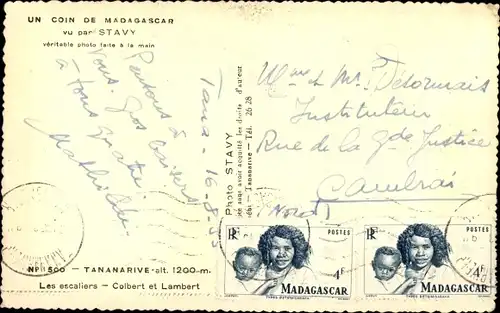 UN COIN DE MADAGASCAR
vu par STAVY
véritable photo faite à la main
Tana - 16-8-55
Pensons à
vous. Gros baisers
à tous quatre.
Mathilde
Photo STAVY
Tananarive - Tél. 26 28
Mme et Mr. Delormais
Instituteur
Rue de la Gde Justice
Cambrai
(Nord)
RF
POSTES
4F
MADAGASCAR
RF
POSTES
4F
MADAGASCAR
Nº 500 - TANANARIVE - alt. 1200-m.
Les escaliers - Colbert et Lambert